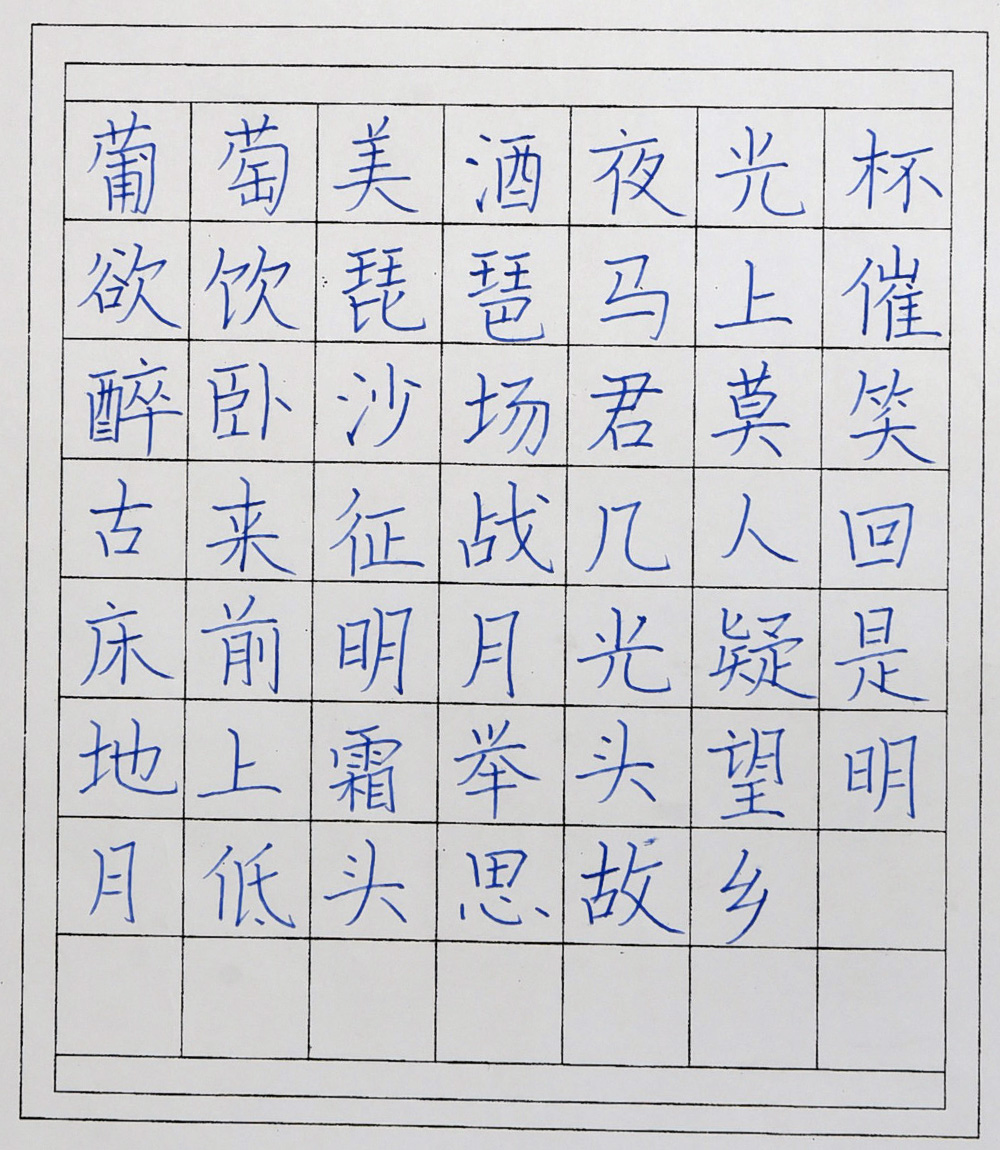 葡萄美酒夜光杯
欲饮琵琶马上催
醉卧沙场君莫笑
古来征战几人回
床前明月光疑是
地上霜举头望明
月低头思故乡